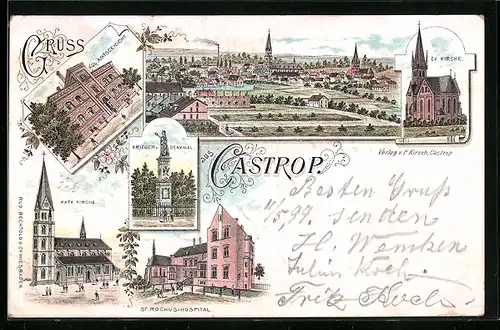 GRUSS
KGL. AMTSGERICHT.
EV. KIRCHE.
KRIEGER-DENKMAL.
AUS
CASTROP.
Verlag v. F. Kirsch, Castrop.
KATH. KIRCHE.
ST. ROCHUS-HOSPITAL.
RUD. BECHTOLD & CO. WIESBADEN.
Besten Gruß
11/5.99. senden
H.
Julius Koch.
Fritz Koch.